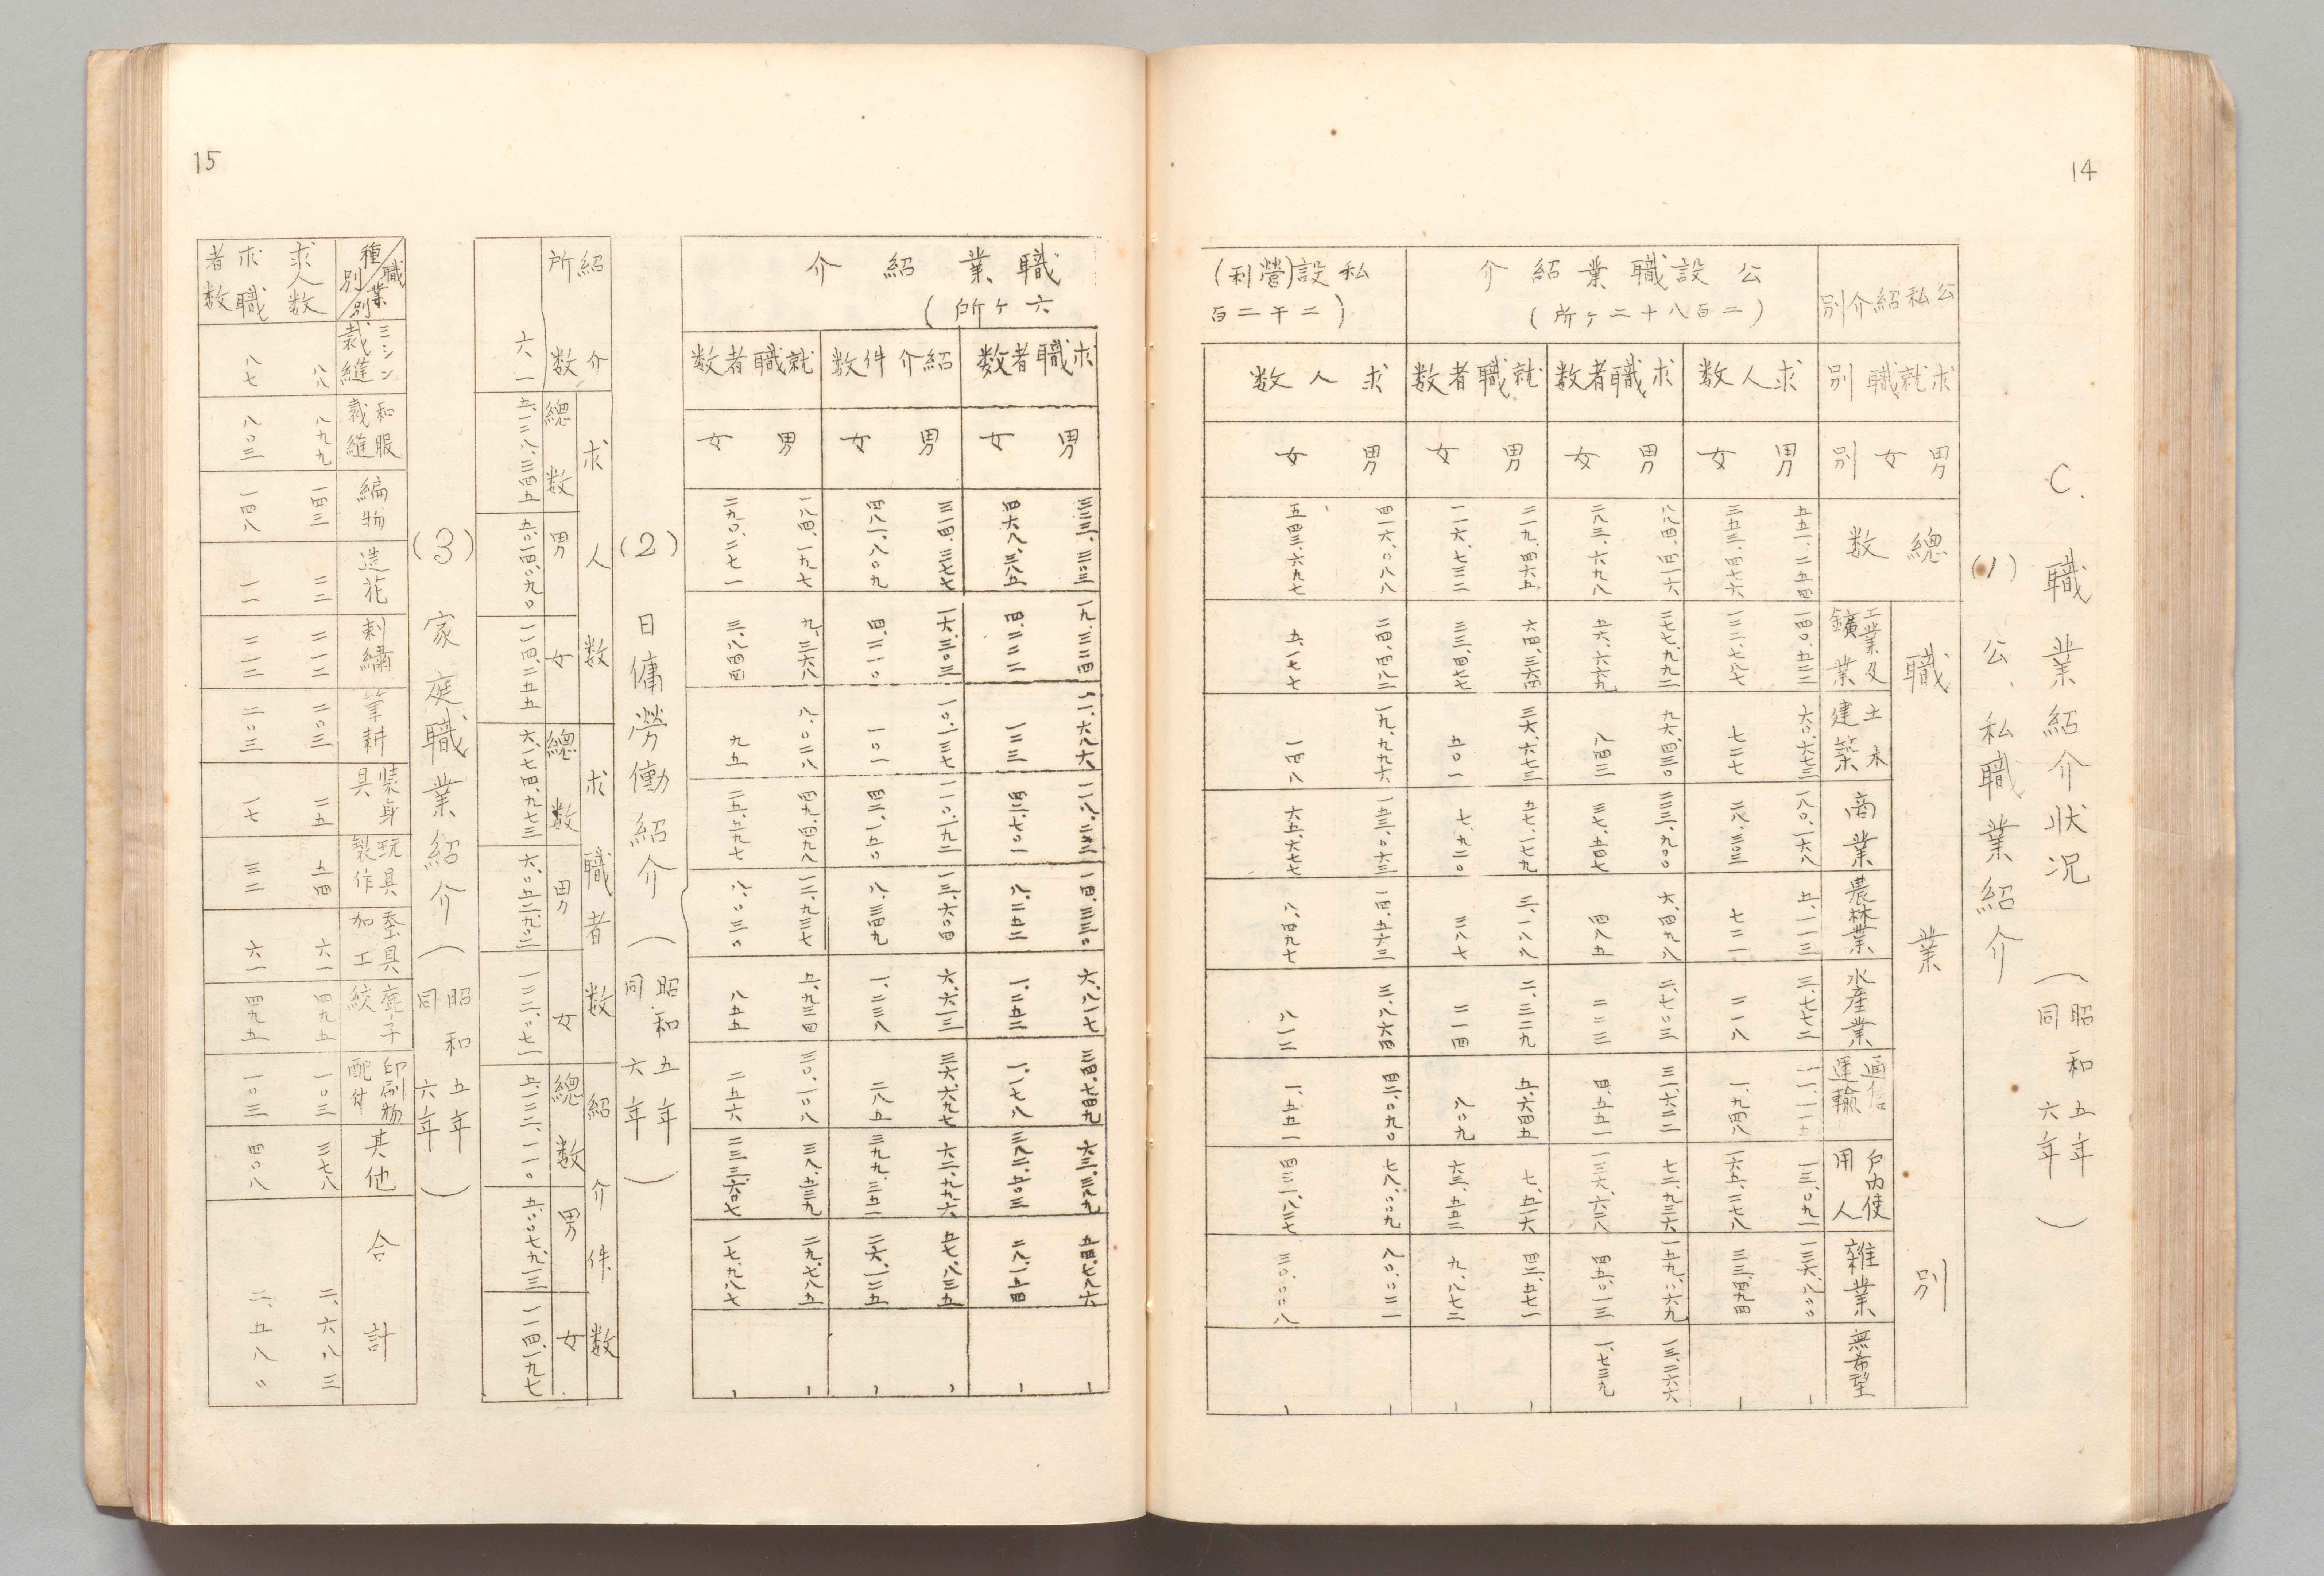 14
C. 職業紹介状況(昭和五年 同六年)
(1) 公、私職業紹介
公私紹介別 求就職別 男女別 總数 職業別
工業及鑛業 土木建築 商業 農林業 水産業 通信運輸 戸内使用人 雑業 無希望
公設職業紹介
(二百八十二ヶ所)
求人数
男 五五一、二五四 一四〇、五二三 六〇、六七三 一八〇、一六八 五、一一三 三、七七二 一一、一一五 一三、〇九一 一三六、八〇〇 、
女 三五三、四七六 一二二、七八七 七二七 二八、三〇三 七二一 二一八 一、九四八 一六五、二七八 三三、四九四 、
求職者数
男 八八四、四一六 二七七、九九二 九六、四三〇 二二三、九〇〇 六、四九八 二、七〇三 三一、六二二 七二、九三六 一五九、〇六九 一三、二六六
女 二八三、六九八 五六、六六九 八四三 三七、五四七 四八五 二二三 四、五五一 一三六、六二八 四五、〇一三 一、七三九
就職者数
男 二一九、四六五 六四、三六四 三六、六七三 五七、一七九 三、一八八 二、三二九 五、六四五 七、五一六 四二、五七一 、
女 一一六、七三二 三三、四七七 五〇一 七、九二〇 三八七 二一四 八〇九 六三、五五二 九、八七二 、
私設(營利)
(二千二百
求人数
男 四一六、〇八八 二四、四八二 一九、九九六 一五三、〇六三 一四、五六三 三、八六四 四二、〇九〇 七八、〇〇九 八〇、〇二一 、
女 五四三、六九七 五、一七七 一四八 六五、六七七 八、四九七 八一二 一、五五一 四三一、八二七 三〇、〇〇八 、
15
職業紹介
六ヶ所)
求職者数
男 三二三、三〇三 一九、三二四 一一、六八六 一一八、二二二 一四、三三〇 六、八一七 三四、七四九 六三、三八九 五四、七八六 、
女 四六八、三八五 四、二二二 一二三 四二、七〇一 八、二五二 一、二五二 一、一七八 三八二、五〇三 二八、一五四 、
紹介件数
男 三一四、三七七 一六、三〇三 一〇、一三七 一一〇、一九二 一三、六〇四 六、六一三 三六、六九七 六二、九九六 五七、八三五 、
女 四八一、八〇九 四、二一〇 一〇一 四二、一五〇 八、三四九 一、二三八 二八五 三九九、三五一 二六、一二五 、
就職者数
男 一八四、一九七 九、三六八 八、〇二八 四九、四九八 一二、九三七 五、九三四 三〇、一〇八 三八、五三九 二九、七八五 、
女 二九〇、二七一 三、八四四 九五 二五、五九七 八、〇三〇 八五五 二五六 二三三、六〇七 一七、九八七 、
(2) 日傭勞働紹介(昭和五年 同六年)
紹介所数 求人数 求職者数 紹介件数
總数 男 女 總数 男 女 總数 男 女
六一 五、一二八、三四五 五、〇一四、〇九〇 一一四、二五五 六、一七四、九七三 六、〇五二、九〇二 一二二、〇七一 五、一二二、一一〇 五、〇〇七、九一三 一一四、一九七
(3) 家庭職業紹介(昭和五年 同六年)
職業別 種別 ミシン裁縫 和服裁縫 編物 造花 刺繍 筆耕 装身具 玩具製作 蚕具加工 鹿子絞 印刷物配付 其他 合計
求人数 八八 八九九 一四三 二二 二一二 二〇三 二五 五四 六一 四九五 一〇三 三七八 二、六八三
求職者数 八七 八〇三 一四八 一一 二一二 二〇三 一七 三二 六一 四九五 一〇三 四〇八 二、五八〇